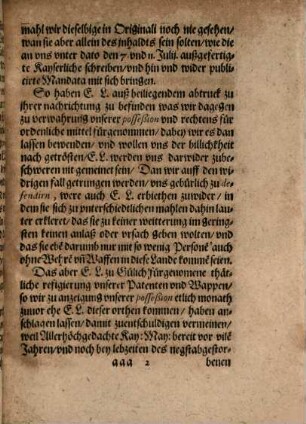 mahl wir dieselbige in Originali noch nie gesehen/
wan sie aber allein des inhaldts sein solten/ wie die
an vns vnter dato den 7. vnd 11. Julij. außgefertig-
te Kayserliche schreiben/ vnd hin vnd wider publi-
cirte Mandata mit sich bringen.
So haben E. L. auß beiligendem abtruck zu
ihrer nachrichtung zu befinden was wir dagegen
zu verwahrung vnserer possession vnd rechtens für
ordenliche mittel fürgenommen/ dabey wir es dan
lassen bewenden/ vnd wollen vns der billichtheit
nach getrösten/ E. L. werden vns darwider zube-
schweren nit gemeinet sein/ Dan wir auff den wi-
drigen fall getrungen werden/ vns gebürlich zu de-
fendirn, were auch E. L. erbiethen zuwider/ in
dem sie sich zu vnterschiedlichen mahlen dahin lau-
ter erkleret/ das sie zu keiner weitterung im gering-
sten keinen anlaß oder vrsach geben wolten/ vnd
das sie ebē darumb nur mit so wenig Personē auch
ohne Wehrē vñ Waffen in diese Lande kommē seien.
Das aber E. L. zu Gülich fürgenomene thät-
liche refigirung vnserer Patenten vnd Wappen/
so wir zu anzeigung vnserer possession etlich monath
zuuor ehe E. L. dieser orthen kommen/ haben an-
schlagen lassen/ damit zuentschuldigen vermeinen/
weil Allerhöchgedachte Kay: May: bereit vor vilē
Jahren/ vnd noch bey lebzeiten des negstabgestor-
aaa 2 benen